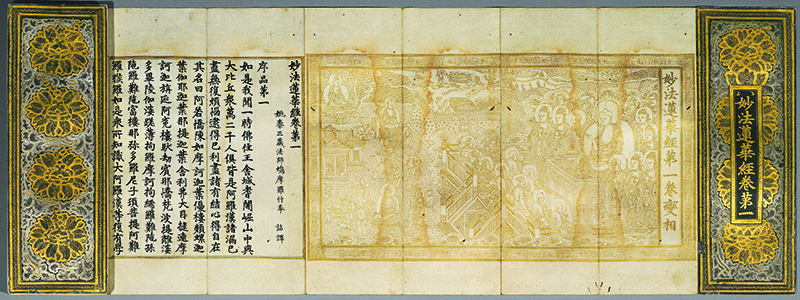 妙法蓮華經卷第一
妙法蓮華經第一卷變相
妙法蓮華經卷第一
姚秦三藏法師鳩摩羅什奉 詔譯
序品第一
如是我聞一時佛住王舍城耆闍崛山中與
大比丘衆萬二千人俱皆是阿羅漢諸漏已
盡無復煩惱逮得己利盡諸有結心得自在
其名曰阿若憍陳如摩訶迦葉優樓頻螺迦
葉伽耶迦葉那提迦葉舍利弗大目揵連摩
訶迦旃延阿㝹樓馱劫賓那憍梵波提離婆
多畢陵伽婆蹉薄拘羅摩訶拘絺羅難陁孫
陁羅難陁富樓那彌多羅尼子須菩提阿難
羅睺羅如是衆所知識大阿羅漢等復有學